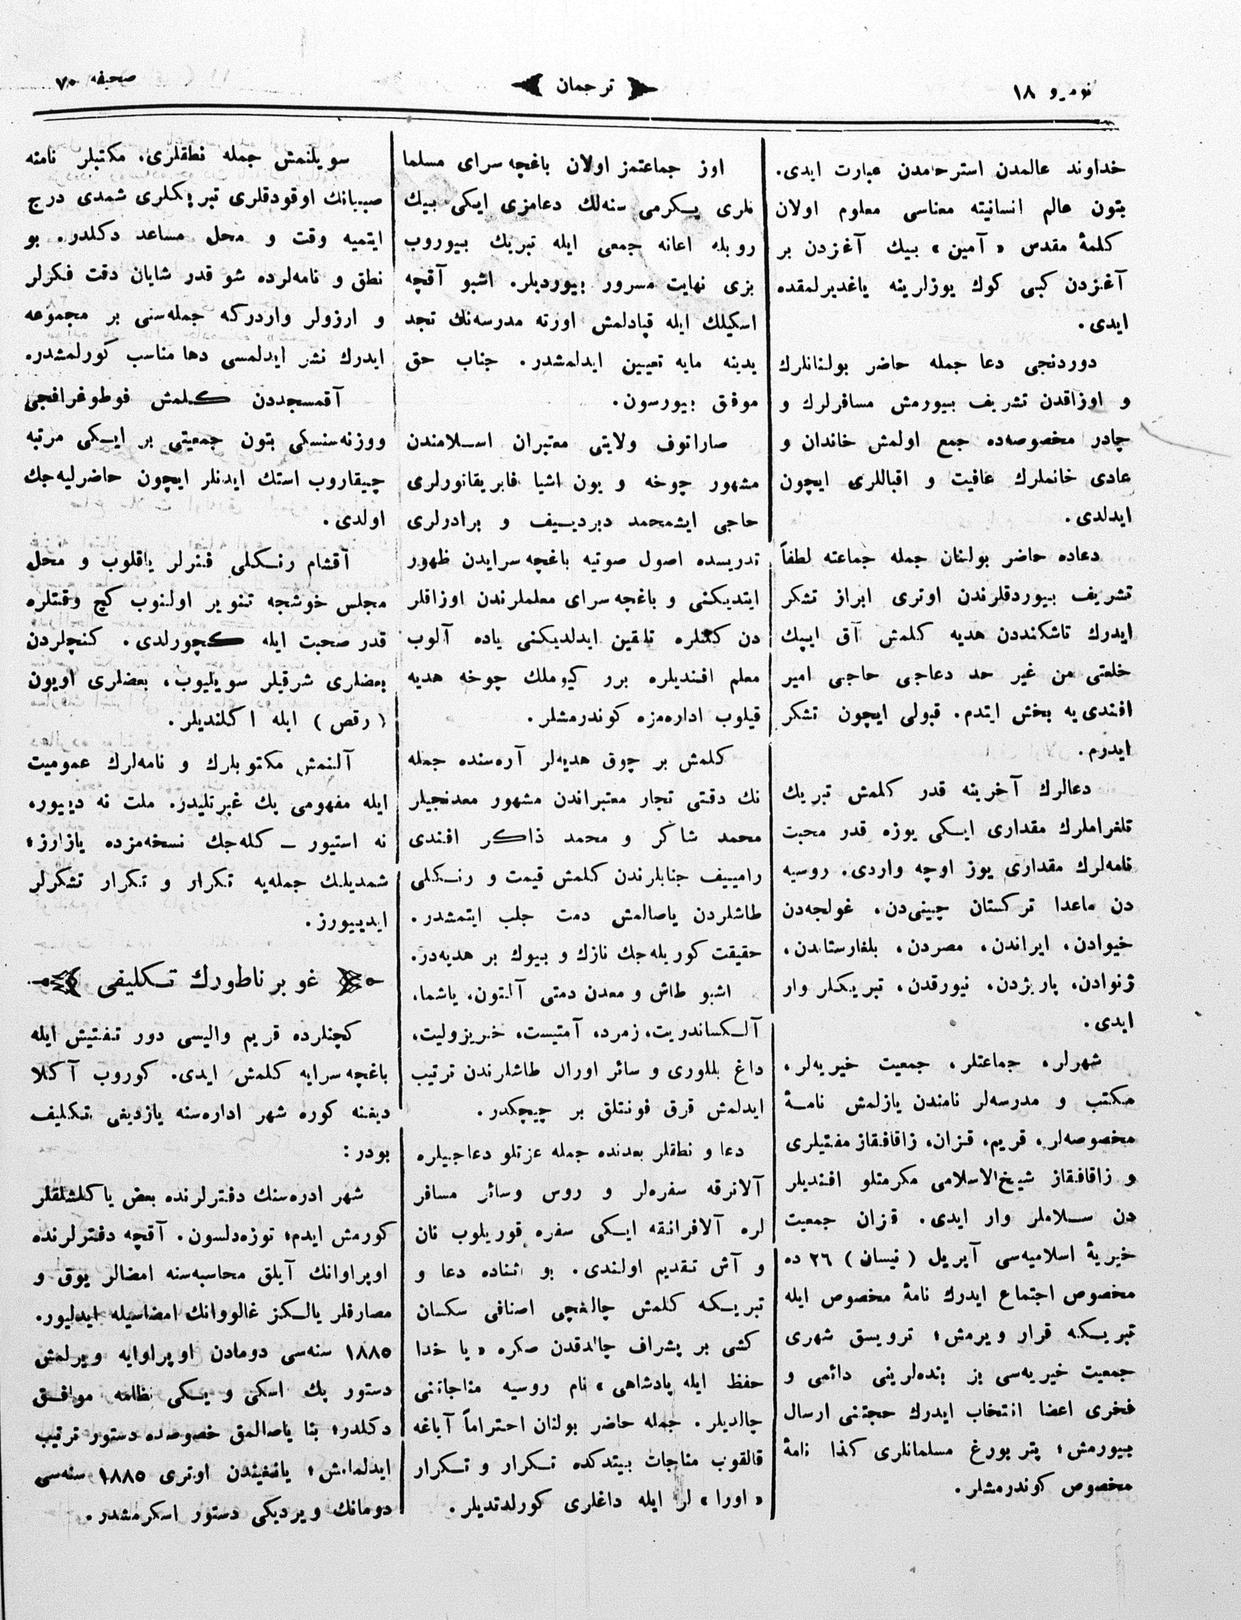 نومرو ١٨
ترجمان
صحيفه ٧٠
خداوند عالمدن استرحامدن عبارت ايدى.
بتون عالم انسانيته معناسى معلوم اولان
كلمۀ مقدس « آمين » بيك آغزدن بر
آغزدن كبى كوك يوزلرينه ياغديرلمقده
ايدى.
دوردنجى دعا جمله حاضر بولنانلرك
و اوزاقدن تشريف بيورمش مسافرلرك و
چادر مخصوصه‌ده جمع اولمش خاندان و
عادى خانملرك عافيت و اقباللرى ايچون
ايدلدى.
دعاده حاضر بولنان جمله جماعته لطفاً
تشريف بيوردقلرندن اوترى ابراز تشكر
ايدرك تاشكنددن هديه كلمش آق ايپك
خلعتى من غير حد دعاجى حاجى امير
افندى‌يه بخش ايتدم. قبولى ايچون تشكر
ايدرم.
دعالرك آخرينه قدر كلمش تبريك
تلغراملرك مقدارى ايكى يوزه قدر محبت
نامه‌لرك مقدارى يوز اوچه واردى. روسيه
دن ماعدا تركستان چينى‌دن، غولجه‌دن
خيوادن، ايراندن، مصردن، بلغارستاندن،
ژنوادن، پاريژدن، نيورقدن، تبريكلر وار
ايدى.
شهرلر، جماعتلر، جمعيت خيريه‌لر،
مكتب و مدرسه‌لر نامندن يازلمش نامۀ
مخصوصه‌لر، قريم، قزان، زاقافقاز مفتيلرى
و زاقافقاز شيخ‌الاسلامى مكرمتلو افنديلر
دن سلاملر وار ايدى. قزان جمعيت
خيريۀ اسلاميه‌سى آپريل ( نيسان ) ٢٦ ده
مخصوص اجتماع ايدرك نامۀ مخصوص ايله
تبريكه قرار ويرمش؛ ترويسق شهرى
جمعيت خيريه‌سى بز بنده‌لرينى دائمى و
فخرى اعضا انتخاب ايدرك حجتنى ارسال
بيورمش؛ پتربورغ مسلمانلرى كذا نامۀ
مخصوص كوندرمشلر.
اوز جماعتمز اولان باغچه سراى مسلما
نلرى يكرمى سنه‌لك دعامزى ايكى بيك
روبله اعانه جمعى ايله تبريك بيوروب
بزى نهايت مسرور بيورديلر. اشبو آقچه
اسكيلك ايله قپادلمش اورته مدرسه‌نك تجد
يدينه مايه تعيين ايدلمشدر. جناب حق
موفق بيورسون.
صاراتوف ولايتى معتبران اسلامندن
مشهور چوخه و يون اشيا فابريقانورلرى
حاجى ايشمحمد دبرديف و برادرلرى
تدريسده اصول صوتيه باغچه سرايدن ظهور
ايتديكنى و باغچه سراى معلملرندن اوزاقلر
دن كلنلره تلقين ايدلديكنى ياده آلوب
معلم افنديلره برر كيوملك چوخه هديه
قيلوب اداره‌مزه كوندرمشلر.
كلمش بر چوق هديه‌لر آره‌سنده جمله
نك دقتى تجار معتبراندن مشهور معدنجيلر
محمد شاكر و محمد ذاكر افندى
راميیف جنابلرندن كلمش قيمت و رنكلى
طاشلردن ياصالمش دمت جلب ايتمشدر.
حقيقت كوريله‌جك نازك و بيوك بر هديه‌در.
اشبو طاش و معدن دمتى آلتون، ياشما،
آلكساندريت، زمرد، آمتيست، خريزوليت،
داغ بللورى و سائر اورال طاشلرندن ترتيب
ايدلمش قرق فونتلق بر چيچكدر.
دعا و نطقلر بعدنده جمله عزتلو دعاجيلره
آلاترقه سفره‌لر و روس وسائر مسافر
لره آلافرانقه ايكى سفره قوريلوب نان
و آش تقديم اولندى. بو اثناده دعا و
تبريكه كلمش چالغچى اصنافى سكسان
كشى بر پشراف چالدقدن صكره « يا خدا
حفظ ايله پادشاهى » نام روسيه مناجاتنى
چالديلر. جمله حاضر بولنان احتراماً آياغه
قالقوب مناجات بيتدكده تكرار و تكرار
« اورا » لر ايله داغلرى كورلدتديلر.
سويلنمش جمله نطقلرى، مكتبلر نامنه
صبيانك اوقودقلرى تبريكلرى شمدى درج
ايتميه وقت و محل مساعد دكلدر. بو
نطق و نامه‌لرده شو قدر شايان دقت فكرلر
و ارزولر واردركه جمله‌سنى بر مجموعه
ايدرك نشر ايدلمسى دها مناسب كورلمشدر.
آقمسجددن كلمش فوطوغرافجى
ووزنه‌سنسكى بتون جمعيتى بر ايكى مرتبه
چيقاروب استك ايدنلر ايچون حاضرليه‌جك
اولدى.
آقشام رنكلى فنرلر ياقلوب و محل
مجلس خوشجه تنوير اولنوب كچ وقتلره
قدر صحبت ايله كچورلدى. كنچلردن
بعضلرى شرقيلر سويليوب، بعضلرى اويون
( رقص ) ايله اكلنديلر.
آلنمش مكتوبلرك و نامه‌لرك عموميت
ايله مفهومى پك غيرتليدر. ملت نه دييور،
نه استيور — كله‌جك نسخه‌مزده يازارز؛
شمديلك جمله‌يه تكرار و تكرار تشكرلر
ايدييورز.
غوبرناطورك تكليفى
كچنلرده قريم واليسى دور تفتيش ايله
باغچه سرايه كلمش ايدى. كوروب آكلا
ديغنه كوره شهر اداره‌سنه يازديغى تكليف
بودر:
شهر ادره‌سنك دفترلرنده بعض ياكلشلقلر
كورمش ايدم؛ توزه‌دلسون. آقچه دفترلرنده
اوپراوانك آيلق محاسبه‌سنه امضالر يوق و
مصارفلر يالكز غالووانك امضاسيله ايدليور.
١٨٨٥ سنه‌سى دومادن اوپراوايه ويرلمش
دستور پك اسكى و يكى نظامه موافق
دكلدر؛ بنا ياصالمق خصوصده دستور ترتيب
ايدلمامش؛ يانغيندن اوترى ١٨٨٥ سنه‌سى
دومانك ويرديكى دستور اسكرمشدر.